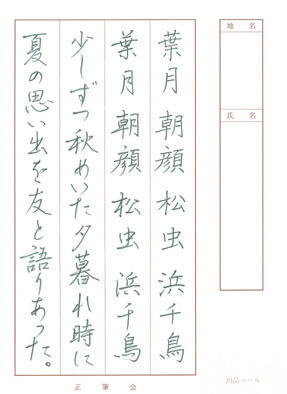 地名
氏名
葉月 朝顔 松虫 浜千鳥
葉月 朝顔 松虫 浜千鳥
少しずつ秋めいた夕暮れ時に
夏の思い出を友と語りあった。
正筆会
出品ツール